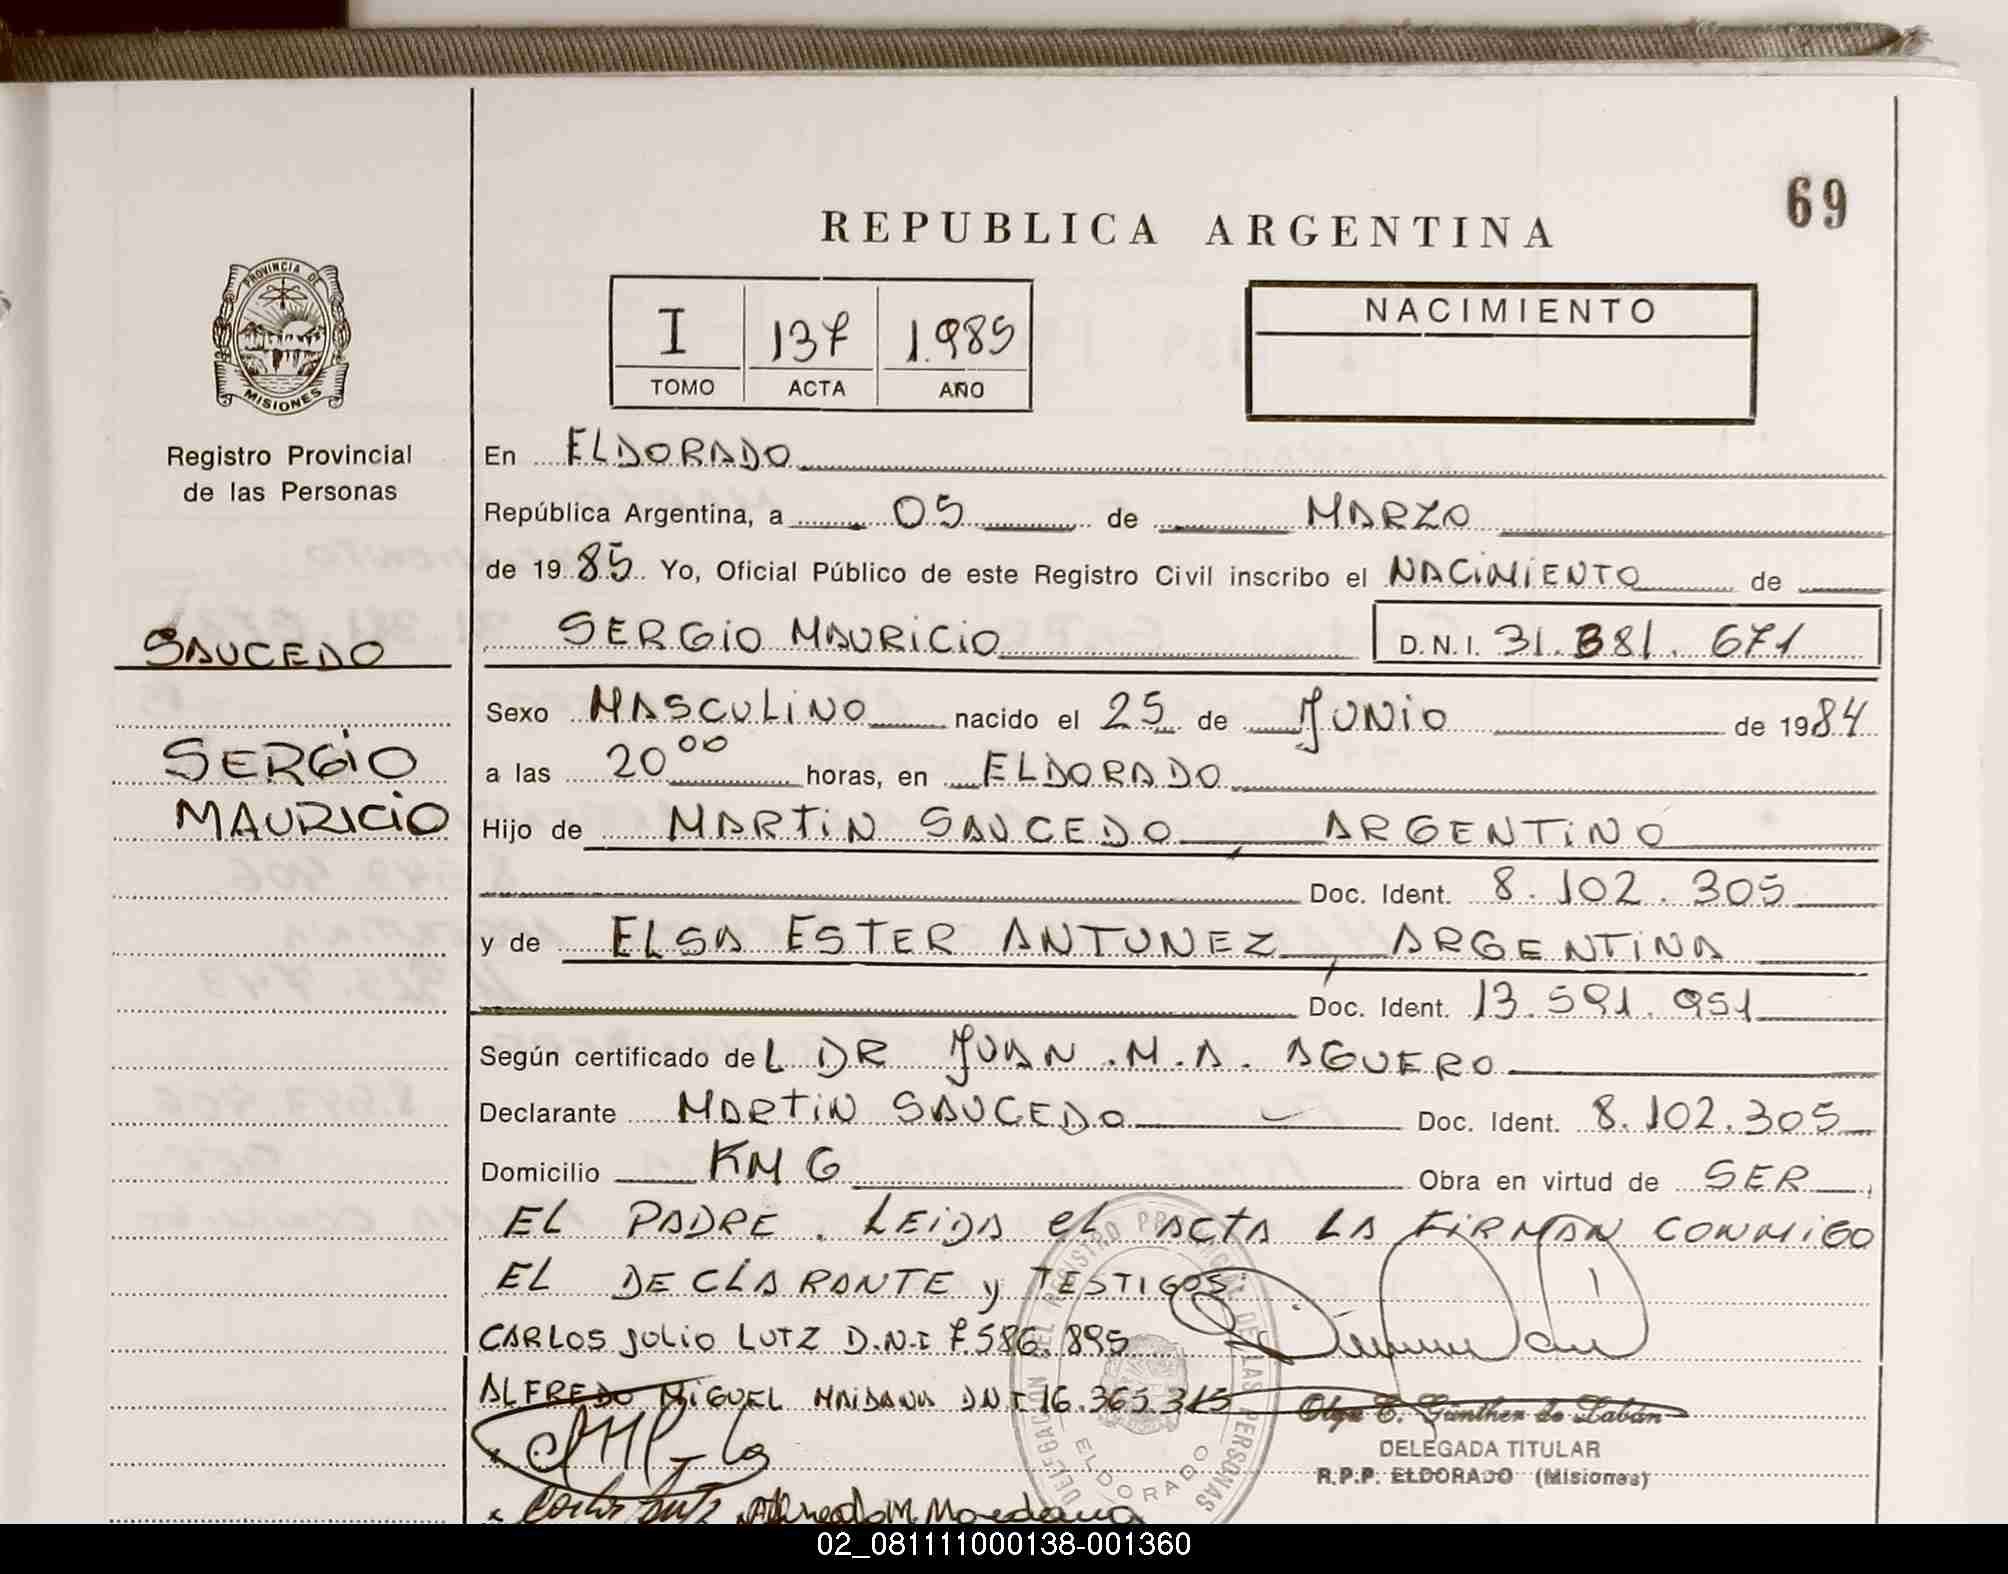 69
REPUBLICA ARGENTINA
PROVINCIA DE
MISIONES
I 137 1.985
TOMO ACTA AÑO
NACIMIENTO
Registro Provincial
de las Personas
SAUCEDO
SERGIO
MAURICIO
En ELDORADO
República Argentina, a 05 de MARZO
de 1985 Yo, Oficial Público de este Registro Civil inscribo el NACIMIENTO de
SERGIO MAURICIO D.N.I. 31.381.671
Sexo MASCULINO nacido el 25 de JUNIO de 1984
a las 20 00 horas, en ELDORADO
Hijo de MARTIN SAUCEDO, ARGENTINO
Doc. Ident. 8.102.305
y de ELSA ESTER ANTUNEZ, ARGENTINA
Doc. Ident. 13.591.951
Según certificado del DR JUAN .M.A. AGUERO
Declarante MARTIN SAUCEDO Doc. Ident. 8.102.305
Domicilio KM 6 Obra en virtud de SER
EL PADRE. LEIDA el ACTA LA FIRMAN CONMIGO
EL DECLARANTE y TESTIGOS:
CARLOS JULIO LUTZ D.N.I 7.586.895
ALFREDO MIGUEL MAIDANA DNI 16.365.315
Olga E. Günther de Labán
DELEGADA TITULAR
R.P.P. ELDORADO (Misiones)
DELEGACION DEL REGISTRO PROVINCIAL DE LAS PERSONAS
ELDORADO
02_081111000138-001360